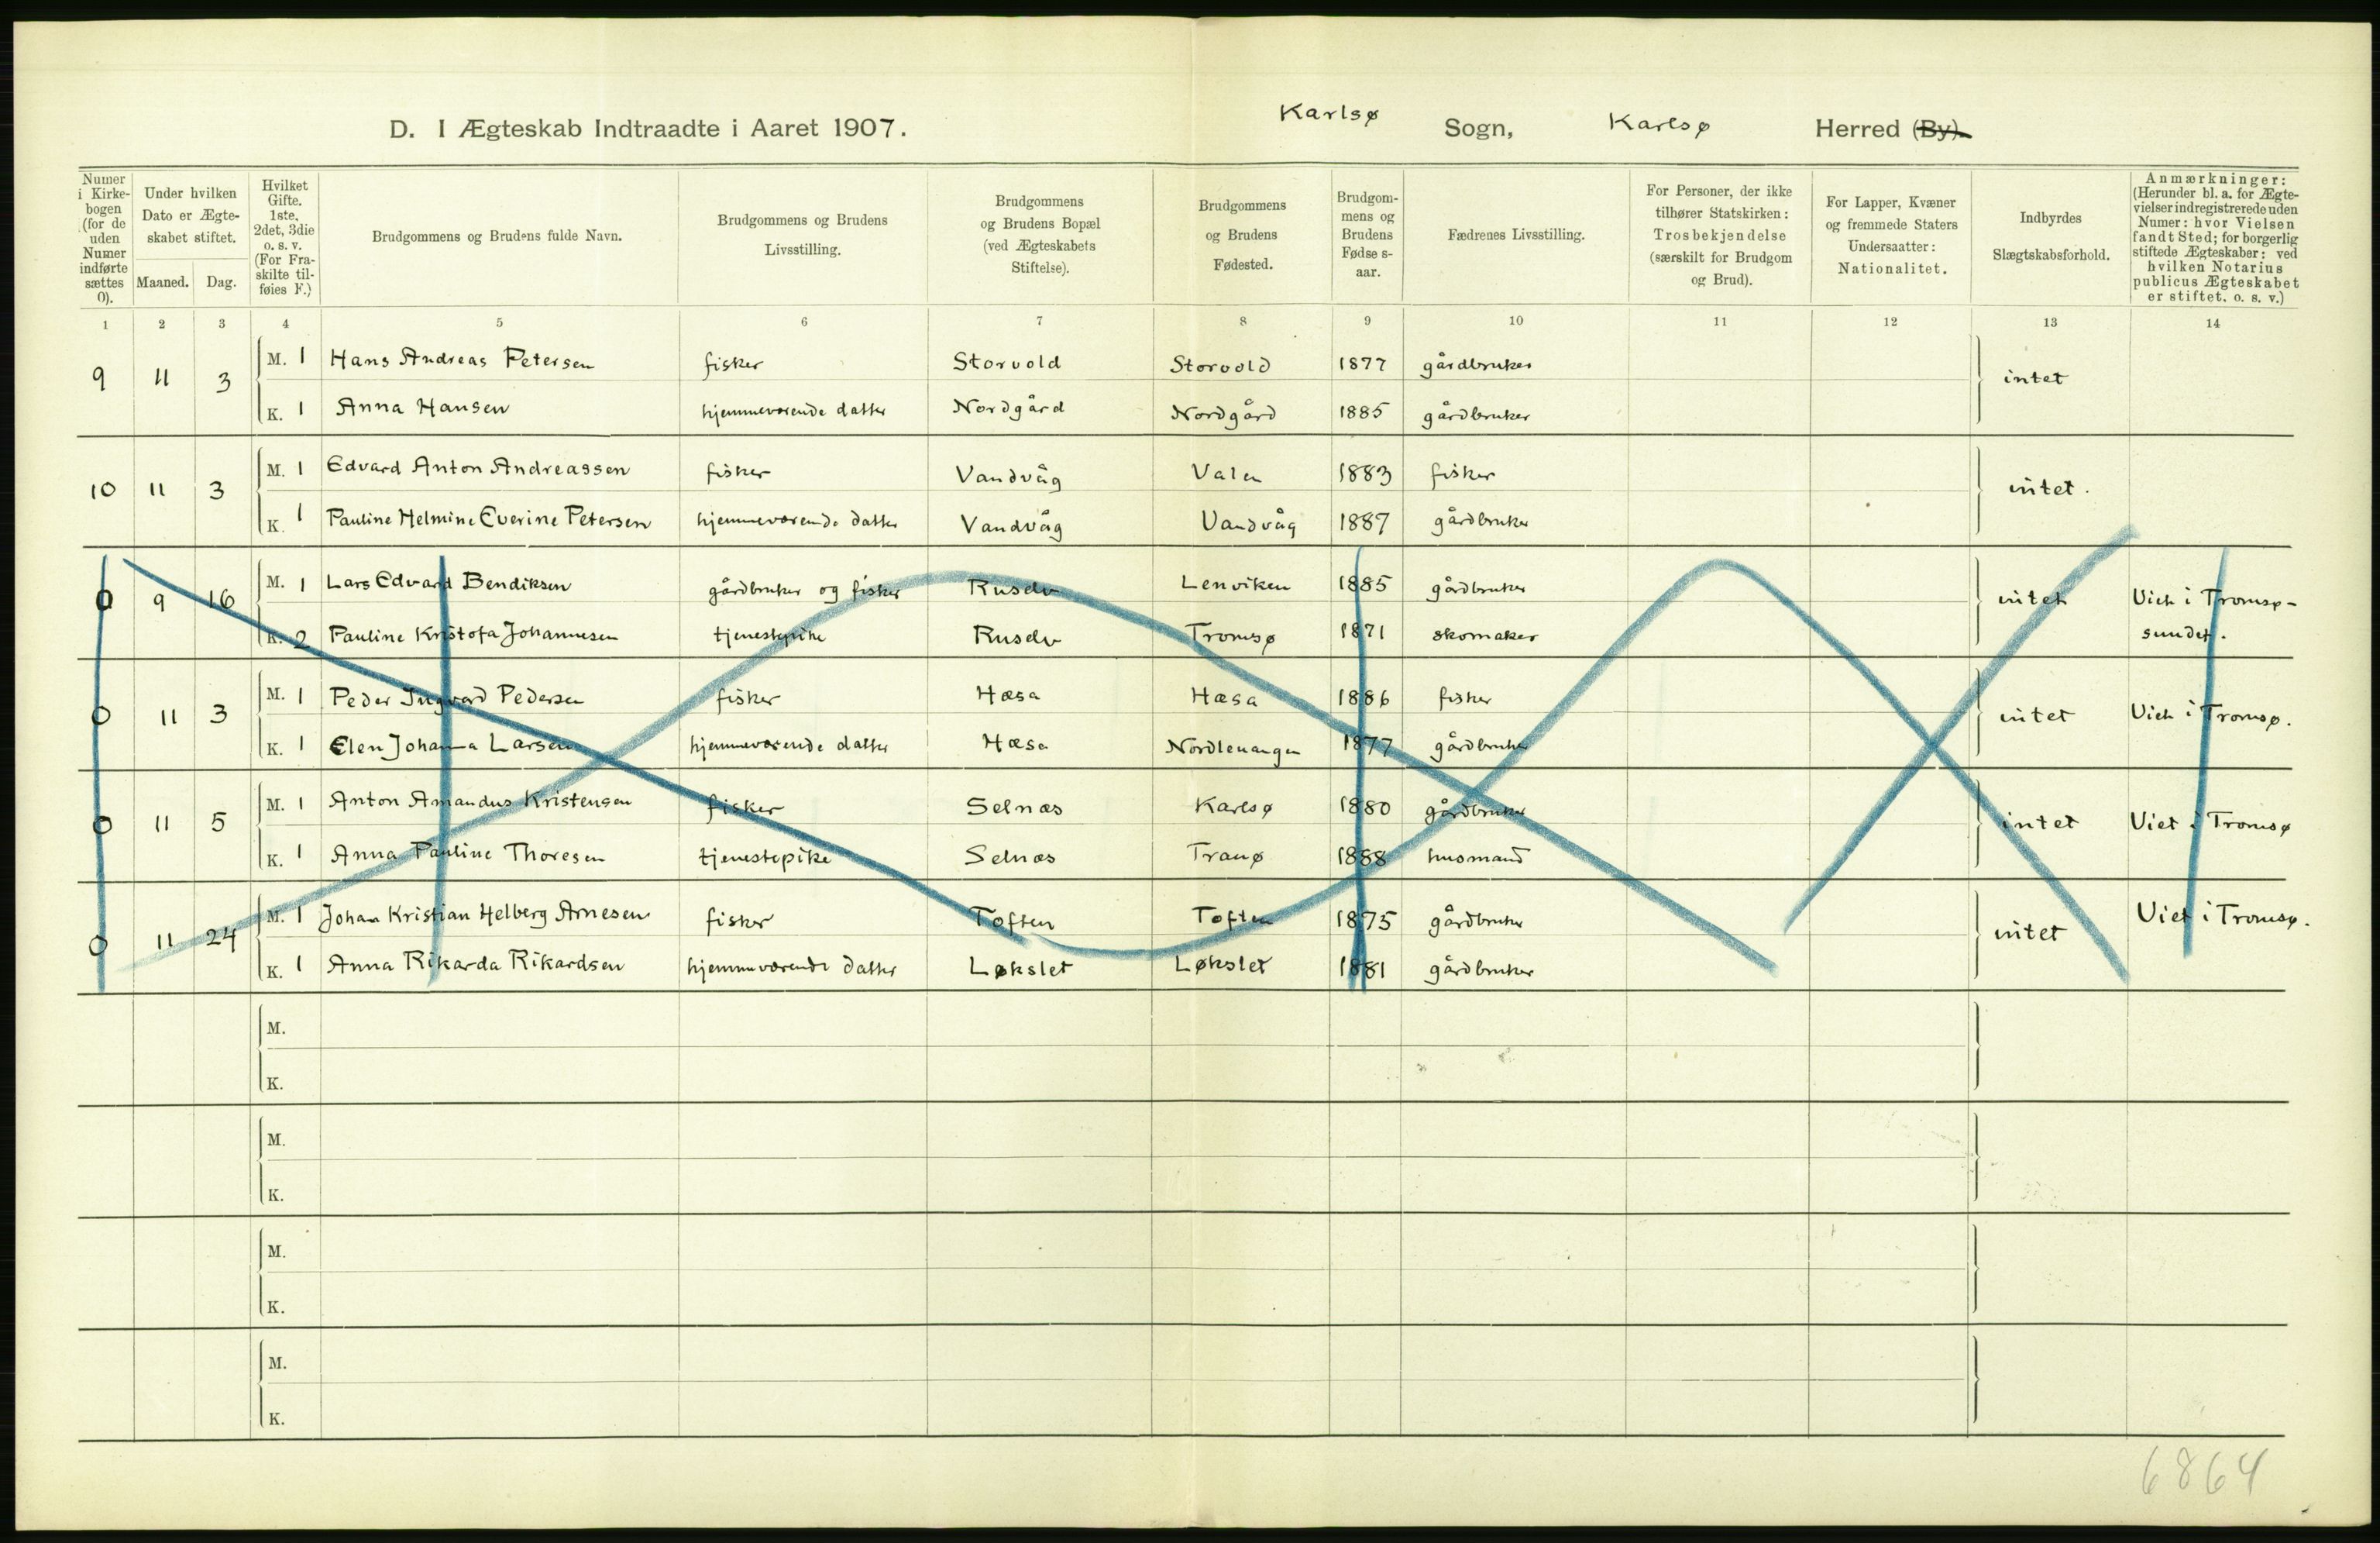 D. I Ægteskab Indtraadte i Aaret 1907. Karlsø Sogn, Karlsø Herred (By).
Numer i Kirke-bogen (for de uden Numer indførte sættes 0).
Under hvilken Dato er Ægte-skabet stiftet.
Maaned. Dag.
Hvilket Gifte. 1ste, 2det, 3die o. s. v. (For Fra-skilte til-føies F.)
Brudgommens og Brudens fulde Navn.
Brudgommens og Brudens Livsstilling.
Brudgommens og Brudens Bopæl (ved Ægteskabets Stiftelse).
Brudgommens og Brudens Fødested.
Brudgom-mens og Brudens Fødse s-aar.
Fædrenes Livsstilling.
For Personer, der ikke tilhører Statskirken: Trosbekjendelse (særskilt for Brudgom og Brud).
For Lapper, Kvæner og fremmede Staters Undersaatter: Nationalitet.
Indbyrdes Slægtskabsforhold.
Anmærkninger: (Herunder bl. a. for Ægte-vielser indregistrerede uden Numer: hvor Vielsen fandt Sted; for borgerlig stiftede Ægteskaber: ved hvilken Notarius publicus Ægteskabet er stiftet. o. s. v.)
1 2 3 4 5 6 7 8 9 10 11 12 13 14
9 11 3 M. 1 Hans Andreas Petersen fisker Storvold Storvold 1877 gårdbruker intet
K. 1 Anna Hansen hjemmeværende datter Nordgård Nordgård 1885 gårdbruker
10 11 3 M. 1 Edvard Anton Andreassen fisker Vandvåg Valen 1883 fisker intet.
K. 1 Pauline Helmine Everine Petersen hjemmeværende datter Vandvåg Vandvåg 1887 gårdbruker
0 9 16 M. 1 Lars Edvard Bendiksen gårdbruker og fisker Ruselv Lenviken 1885 gårdbruker intet Viet i Tromsø-
K. 2 Pauline Kristofa Johannesen tjenestepike Ruselv Tromsø 1871 skomaker sundet.
0 11 3 M. 1 Peder Ingvard Pedersen fisker Hæsa Hæsa 1886 fisker intet Viet i Tromsø.
K. 1 Elen Johanna Larsen hjemmeværende datter Hæsa Nordlenangen 1877 gårdbruker
0 11 5 M. 1 Anton Amandus Kristensen fisker Selnæs Karlsø 1880 gårdbruker intet Viet i Tromsø
K. 1 Anna Pauline Thoresen tjenestepike Selnæs Tranø 1888 husmand
0 11 24 M. 1 Johan Kristian Helberg Arnesen fisker Toften Toften 1875 gårdbruker intet Viet i Tromsø.
K. 1 Anna Rikarda Rikardsen hjemmeværende datter Løkslet Løkslet 1881 gårdbruker
M.
K.
M.
K.
M.
K.
M.
K.
6864